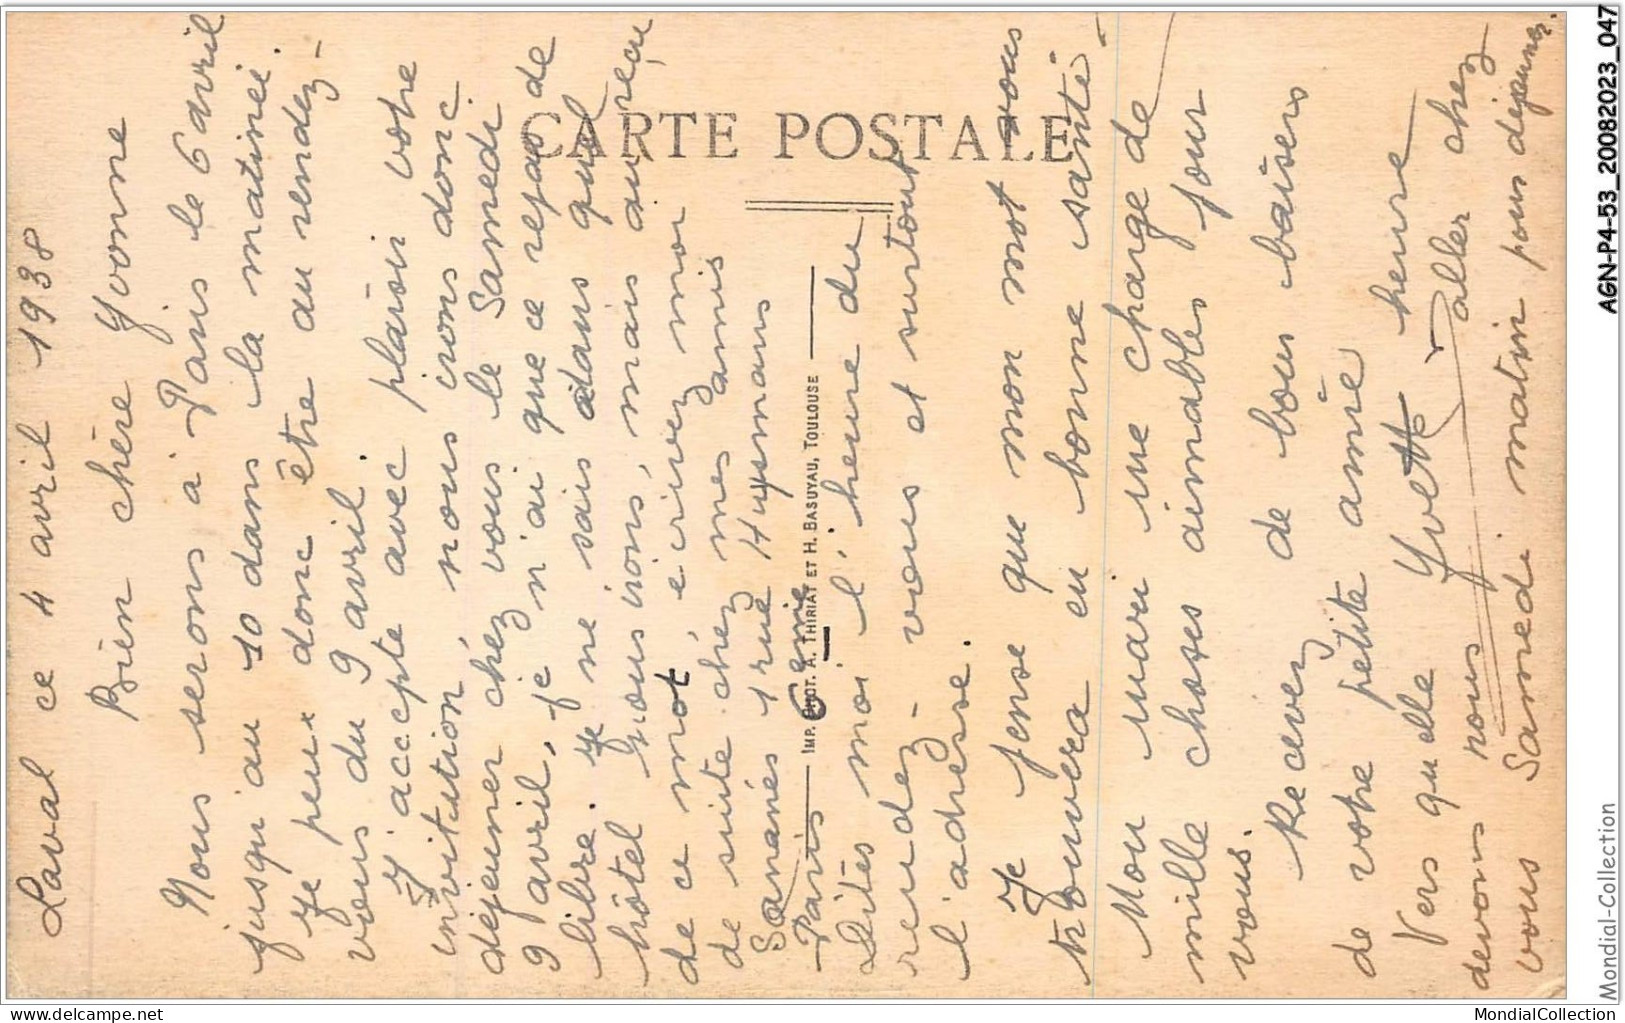 Laval ce 4 avril 1938
Bien chère Yvonne
Nous serons à Paris le 6 avril
jusqu'au 10 dans la matinée.
Je peux donc être au rendez-
vous du 9 avril.
J'accepte avec plaisir votre
invitution, nous irons donc
déjeuner chez vous le Samedi
9 avril, je n'ai que ce repas de
libre. Je ne sais dans quel
hôtel nous irons, mais au reçu
de ce mot, écrivez moi
de suite chez mes amis
1 rue Huysmans
Paris 6 eme
Dites moi l'heure du
rendez-vous et surtout
l'adresse.
Je pense que mon mot vous
trouvera en bonne santé.
Mon mari me charge de
mille choses aimables pour
vous.
Recevez de bons baisers
de votre petite amie
Yvette
Vers quelle heure
devons nous aller chez
vous Samedi matin pour déjeuner.
CARTE POSTALE
IMP. PHOT. A. THIRIAT ET H. BASUYAU, TOULOUSE
AGN-P4-53_20082023_047
Mondial-Collection
delcampe.net
MondialCollection